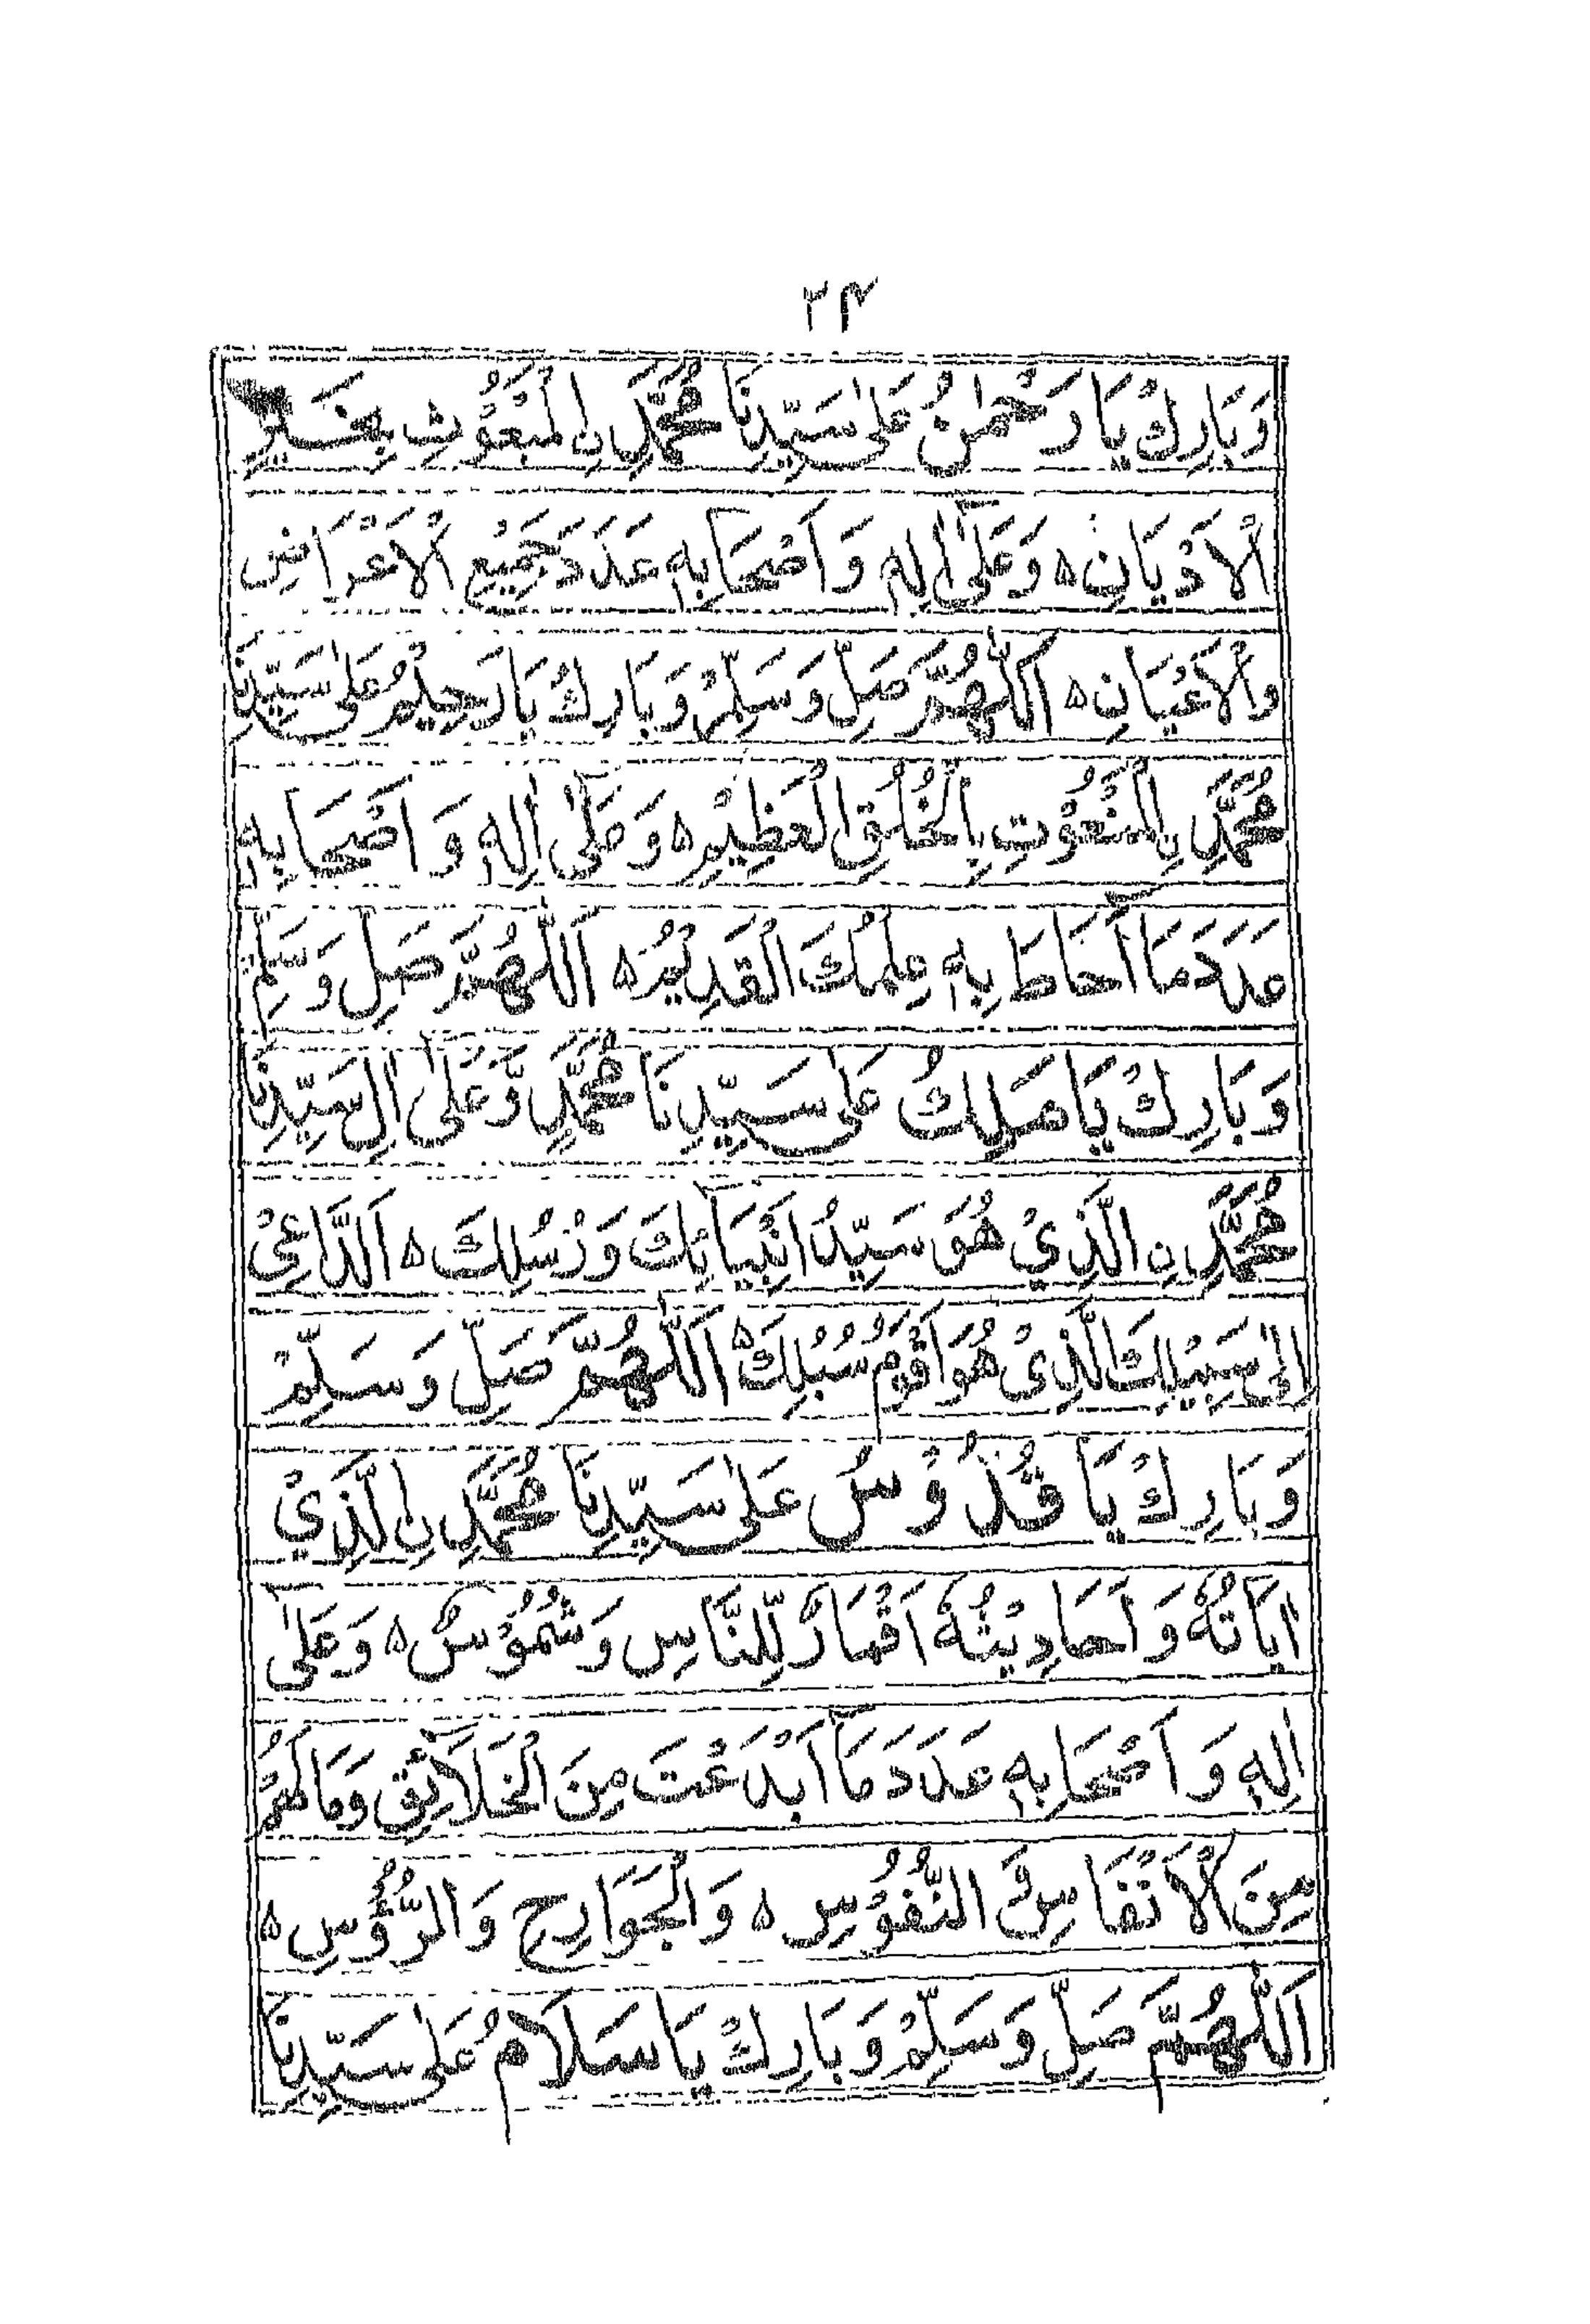 ٢٤
وَبَارِكْ يَا رَحْمٰنُ عَلٰى سَيِّدِنَا مُحَمَّدِ نِ الْمَبْعُوْثِ بِخَيْرِ
الْاَدْيَانِ ه وَعَلٰٓى اٰلِهٖ وَاَصْحَابِهٖ عَدَدَ جَمِيْعِ الْاَعْرَاضِ
وَالْاَعْيَانِ ه اَللّٰهُمَّ صَلِّ وَسَلِّمْ وَبَارِكْ يَا رَحِيْمُ عَلٰى سَيِّدِنَا
مُحَمَّدِ نِ الْمَنْعُوْتِ بِالْخُلُقِ الْعَظِيْمِ ه وَعَلٰٓى اٰلِهٖ وَاَصْحَابِهٖ
عَدَدَ مَآ اَحَاطَ بِهٖ عِلْمُكَ الْقَدِيْمُ ه اَللّٰهُمَّ صَلِّ وَسَلِّمْ
وَبَارِكْ يَا مَلِكُ عَلٰى سَيِّدِنَا مُحَمَّدٍ وَّعَلٰٓى اٰلِ سَيِّدِنَا
مُحَمَّدِ نِ الَّذِيْ هُوَ سَيِّدُ اَنْبِيَآئِكَ وَرُسُلِكَ ه اَلدَّاعِيْ
اِلٰى سَبِيْلِكَ الَّذِىْ هُوَ اَقْوَمُ سُبُلِكَ ه اَللّٰهُمَّ صَلِّ وَسَلِّمْ
وَبَارِكْ يَا قُدُّوْسُ عَلٰى سَيِّدِنَا مُحَمَّدِ نِ الَّذِيْ
اٰيَاتُهٗ وَاَحَادِيْثُهٗ اَقْمَارٌ لِّلنَّاسِ وَشُمُوْسٌ ه وَعَلٰٓى
اٰلِهٖ وَاَصْحَابِهٖ عَدَدَ مَآ اَبْدَعْتَ مِنَ الْخَلَآئِقِ وَمَا لَهُمْ
مِنَ الْاَنْفَاسِ وَالنُّفُوْسِ ه وَالْجَوَارِحِ وَالرُّؤُسِ ه
اَللّٰهُمَّ صَلِّ وَسَلِّمْ وَبَارِكْ يَا سَلَامُ عَلٰى سَيِّدِنَا